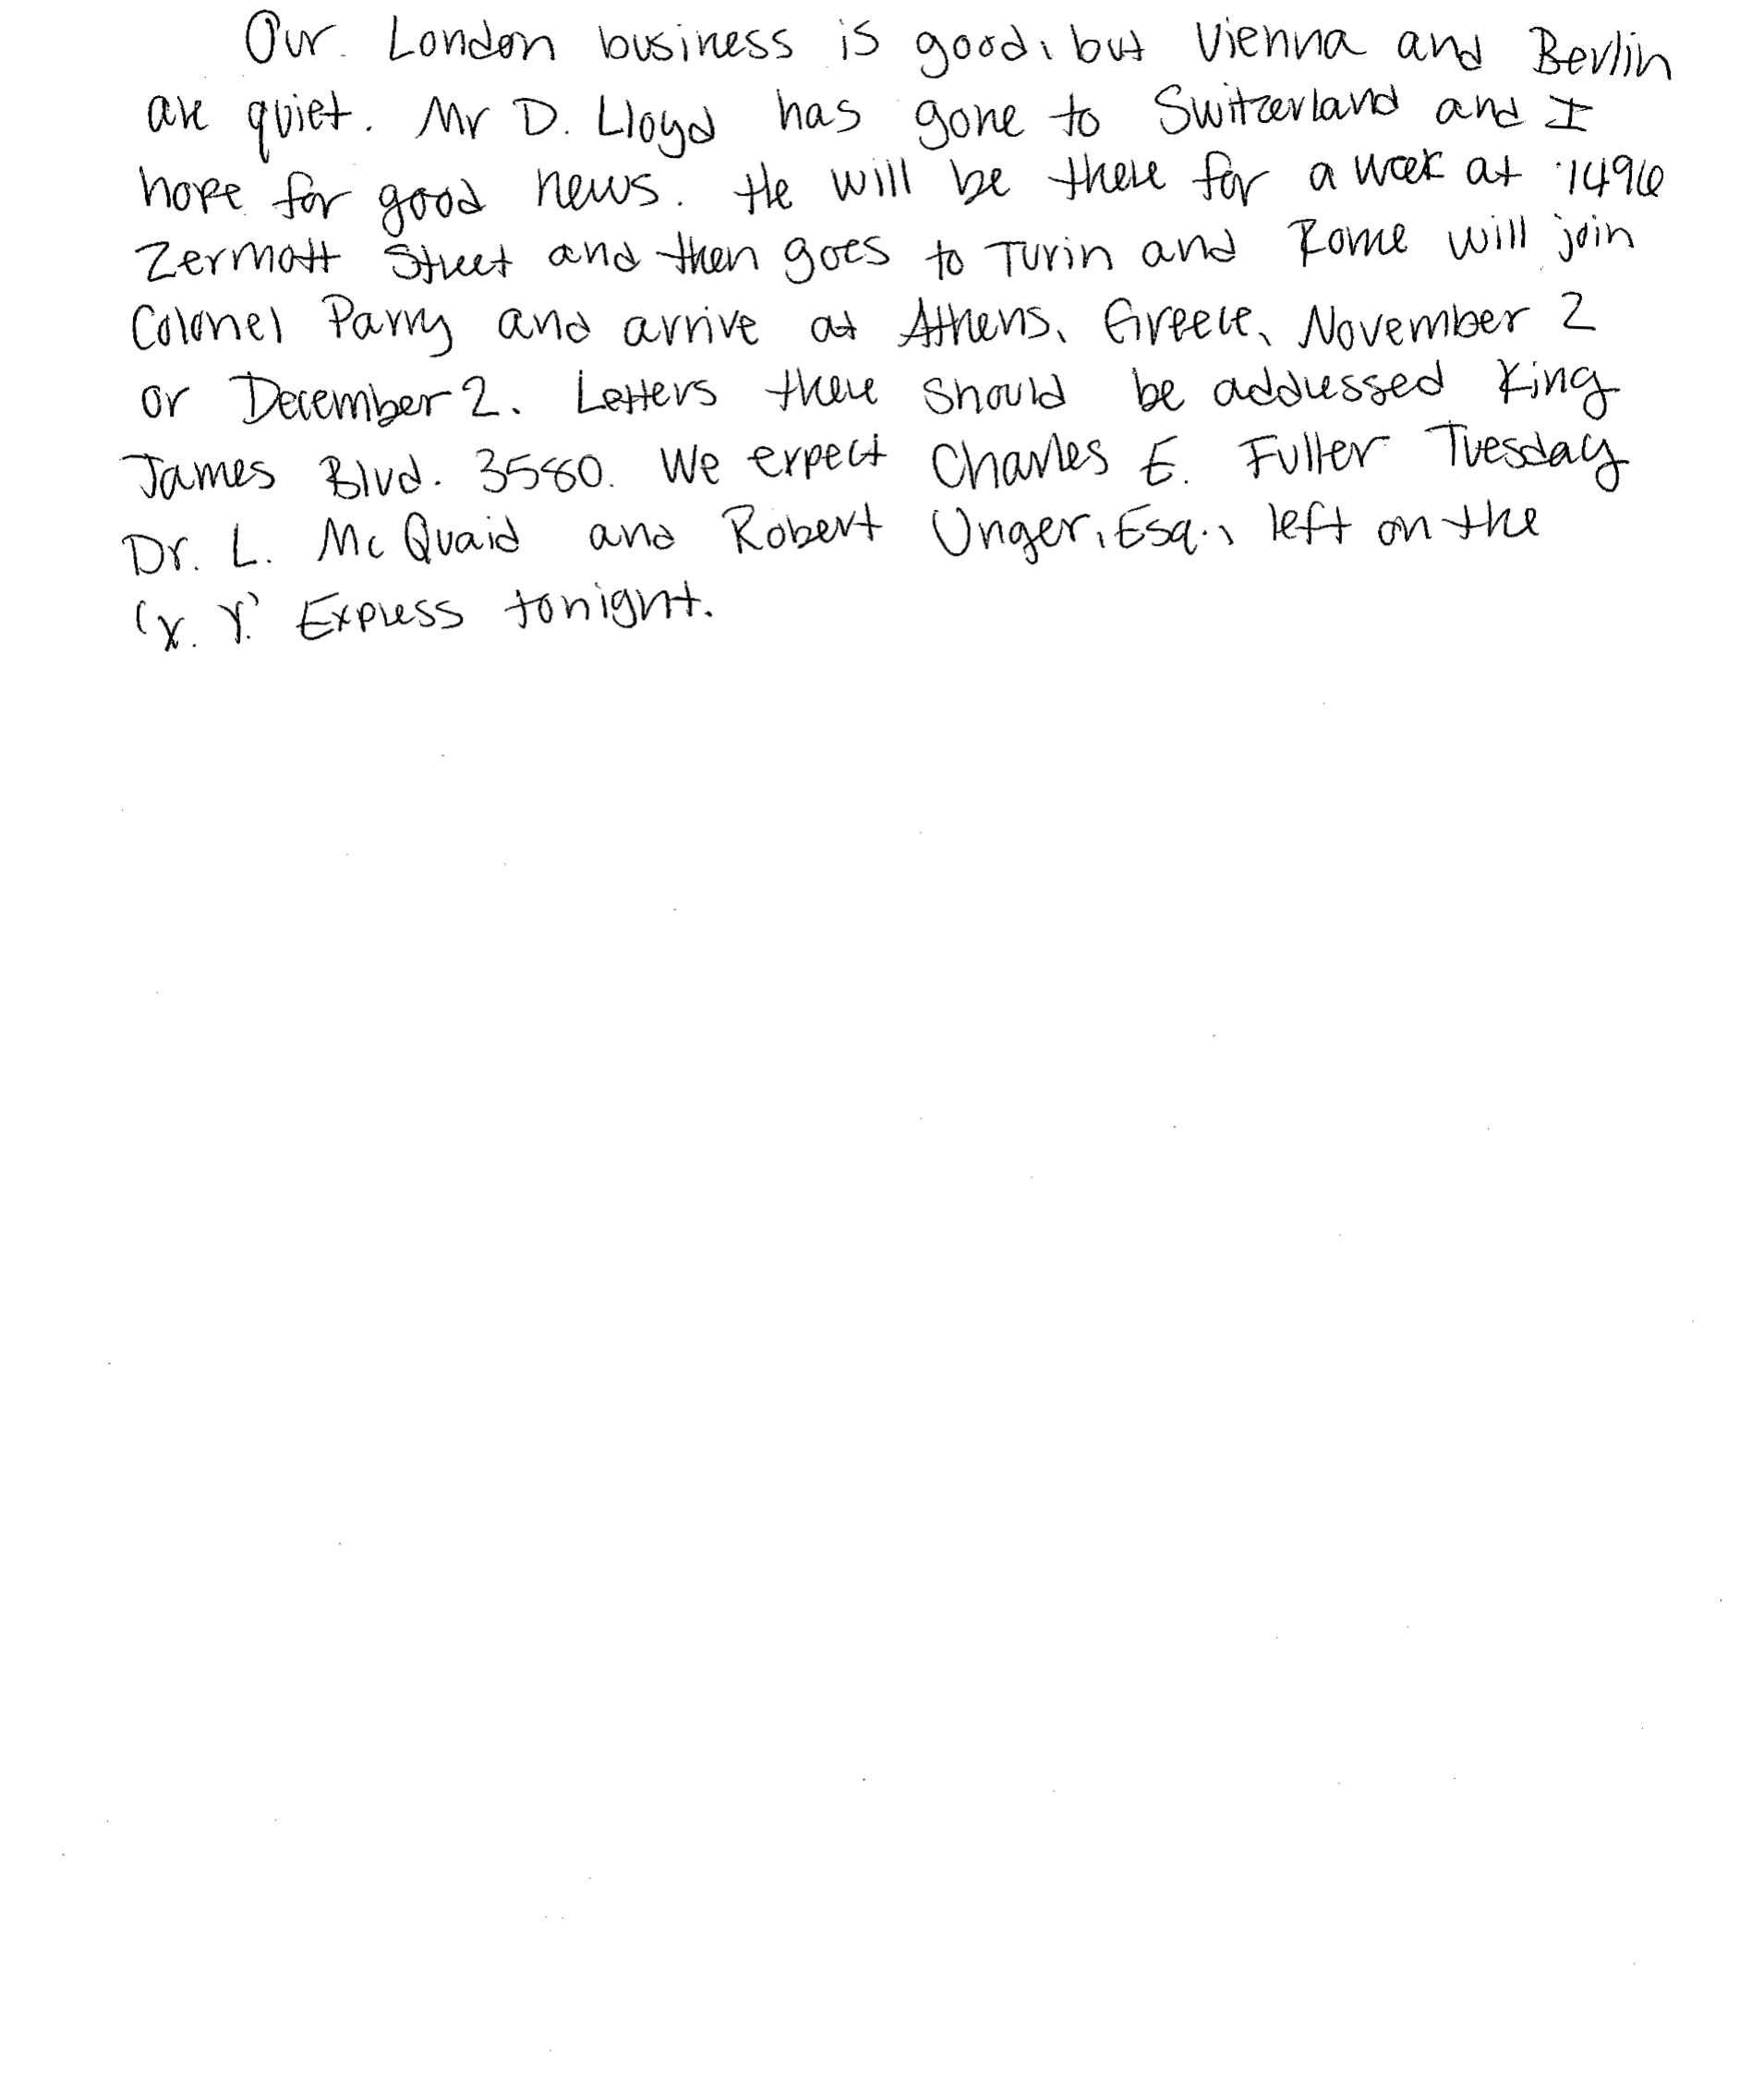 Our London business is good, but Vienna and Berlin
are quiet. Mr D. Lloyd has gone to Switzerland and I
hope for good news. He will be there for a week at 1496
Zermott Street and then goes to Turin and Rome will join
Colonel Parry and arrive at Athens, Greece, November 2
or December 2. Letters there should be addressed King
James Blvd. 3580. We expect Charles E. Fuller Tuesday
Dr. L. McQuaid and Robert Unger, Esq., left on the
'X. Y.' Express tonight.